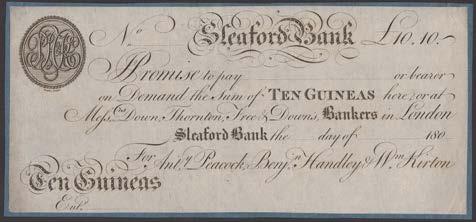 No Sleaford Bank £10.10.-
I Promise to pay or bearer
on Demand the Sum of TEN GUINEAS here, or at
Messrs Down, Thornton, Free & Downs, Bankers in London
Sleaford Bank the day of 180
For Anty Peacock, Benjn Handley, & Wm Kirton
Ten Guineas
Entd